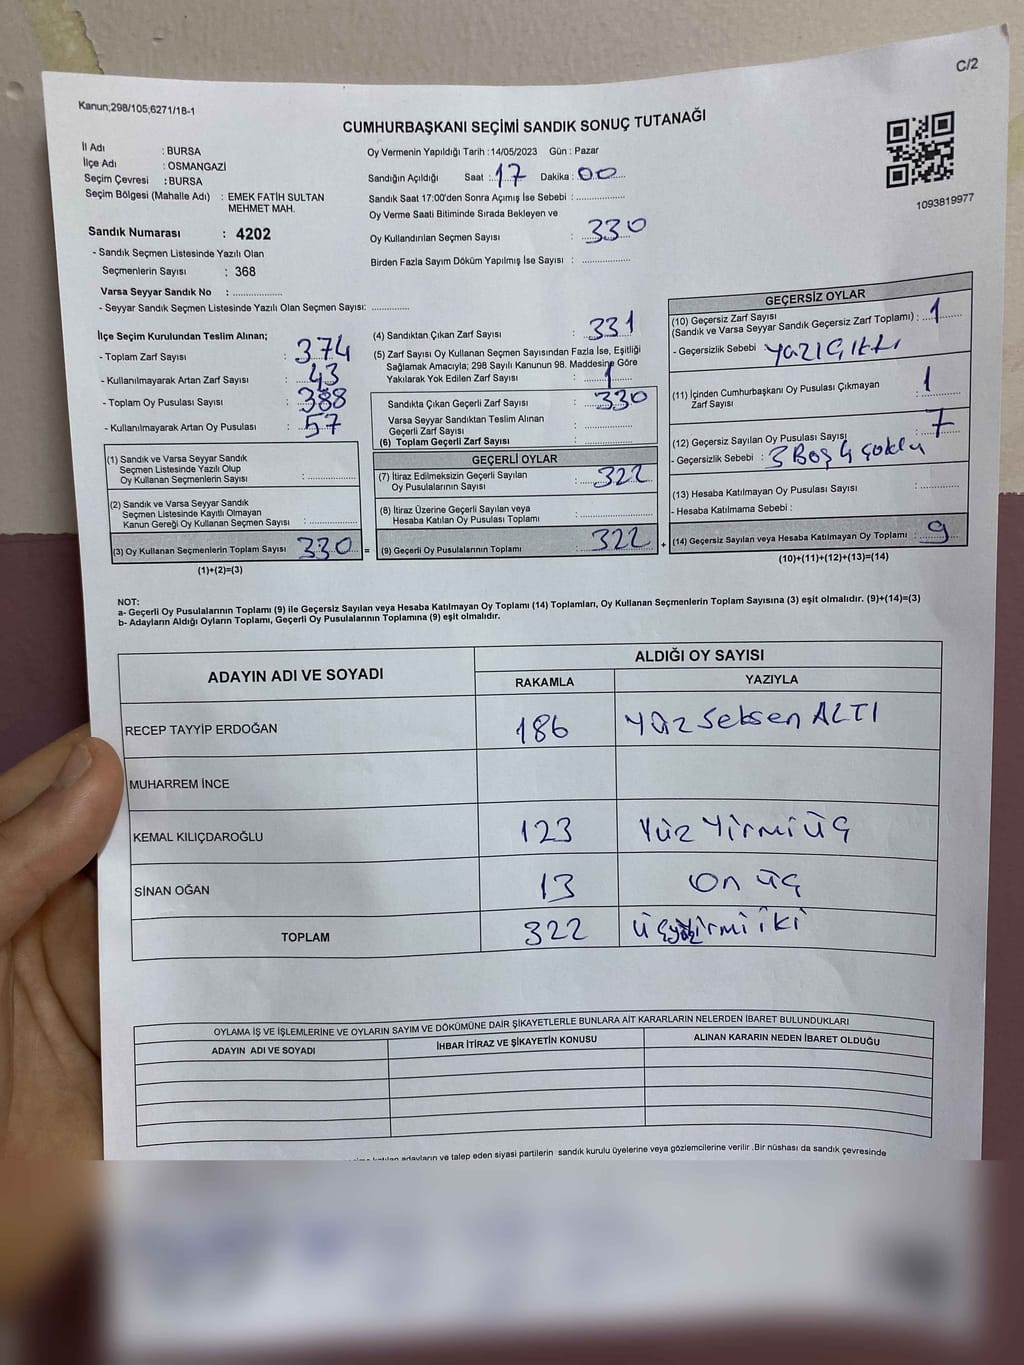 C/2
Kanun;298/105,6271/18-1
CUMHURBAŞKANI SEÇİMİ SANDIK SONUÇ TUTANAĞI
İl Adı : BURSA
İlçe Adı : OSMANGAZİ
Seçim Çevresi : BURSA
Seçim Bölgesi (Mahalle Adı) : EMEK FATİH SULTAN
MEHMET MAH.
Sandık Numarası : 4202
- Sandık Seçmen Listesinde Yazılı Olan
Seçmenlerin Sayısı : 368
Varsa Seyyar Sandık No : ................
- Seyyar Sandık Seçmen Listesinde Yazılı Olan Seçmen Sayısı: ............
Oy Vermenin Yapıldığı Tarih :14/05/2023 Gün : Pazar
Sandığın Açıldığı Saat :17 Dakika :00
Sandık Saat 17:00'den Sonra Açımış İse Sebebi : ................
Oy Verme Saati Bitiminde Sırada Bekleyen ve
Oy Kullandırılan Seçmen Sayısı : 330
Birden Fazla Sayım Döküm Yapılmış İse Sayısı : ................
1093819977
İlçe Seçim Kurulundan Teslim Alınan;
- Toplam Zarf Sayısı : 374
- Kullanılmayarak Artan Zarf Sayısı : 43
- Toplam Oy Pusulası Sayısı : 388
- Kullanılmayarak Artan Oy Pusulası : 57
(1) Sandık ve Varsa Seyyar Sandık
Seçmen Listesinde Yazılı Olup
Oy Kullanan Seçmenlerin Sayısı : ................
(2) Sandık ve Varsa Seyyar Sandık
Seçmen Listesinde Kayıtlı Olmayan
Kanun Gereği Oy Kullanan Seçmen Sayısı : ................
(3) Oy Kullanan Seçmenlerin Toplam Sayısı 330 =
(1)+(2)=(3)
(4) Sandıktan Çıkan Zarf Sayısı : 331
(5) Zarf Sayısı Oy Kullanan Seçmen Sayısından Fazla İse, Eşitliği
Sağlamak Amacıyla; 298 Sayılı Kanunun 98. Maddesine Göre
Yakılarak Yok Edilen Zarf Sayısı : 1
Sandıkta Çıkan Geçerli Zarf Sayısı : 330
Varsa Seyyar Sandıktan Teslim Alınan
Geçerli Zarf Sayısı : ................
(6) Toplam Geçerli Zarf Sayısı : ................
GEÇERLİ OYLAR
(7) İtiraz Edilmeksizin Geçerli Sayılan
Oy Pusulalarının Sayısı : 322
(8) İtiraz Üzerine Geçerli Sayılan veya
Hesaba Katılan Oy Pusulası Toplamı : ................
(9) Geçerli Oy Pusulalarının Toplamı : 322 +
GEÇERSİZ OYLAR
(10) Geçersiz Zarf Sayısı
(Sandık ve Varsa Seyyar Sandık Geçersiz Zarf Toplamı) : 1
- Geçersizlik Sebebi : yazı çıktı
(11) İçinden Cumhurbaşkanı Oy Pusulası Çıkmayan
Zarf Sayısı : 1
(12) Geçersiz Sayılan Oy Pusulası Sayısı : 7
- Geçersizlik Sebebi : 3 Boş 4 çoklu
(13) Hesaba Katılmayan Oy Pusulası Sayısı : ................
- Hesaba Katılmama Sebebi :
(14) Geçersiz Sayılan veya Hesaba Katılmayan Oy Toplamı : 9
(10)+(11)+(12)+(13)=(14)
NOT:
a- Geçerli Oy Pusulalarının Toplamı (9) ile Geçersiz Sayılan veya Hesaba Katılmayan Oy Toplamı (14) Toplamları, Oy Kullanan Seçmenlerin Toplam Sayısına (3) eşit olmalıdır. (9)+(14)=(3)
b- Adayların Aldığı Oyların Toplamı, Geçerli Oy Pusulalarının Toplamına (9) eşit olmalıdır.
ADAYIN ADI VE SOYADI ALDIĞI OY SAYISI
RAKAMLA YAZIYLA
RECEP TAYYİP ERDOĞAN 186 Yüz Seksen ALTI
MUHARREM İNCE
KEMAL KILIÇDAROĞLU 123 Yüz Yirmi üç
SİNAN OĞAN 13 On üç
TOPLAM 322 üçyüzyirmi iki
OYLAMA İŞ VE İŞLEMLERİNE VE OYLARIN SAYIM VE DÖKÜMÜNE DAİR ŞİKAYETLERLE BUNLARA AİT KARARLARIN NELERDEN İBARET BULUNDUKLARI
ADAYIN ADI VE SOYADI İHBAR İTİRAZ VE ŞİKAYETİN KONUSU ALINAN KARARIN NEDEN İBARET OLDUĞU
katılan adayların ve talep eden siyasi partilerin sandık kurulu üyelerine veya gözlemcilerine verilir .Bir nüshası da sandık çevresinde